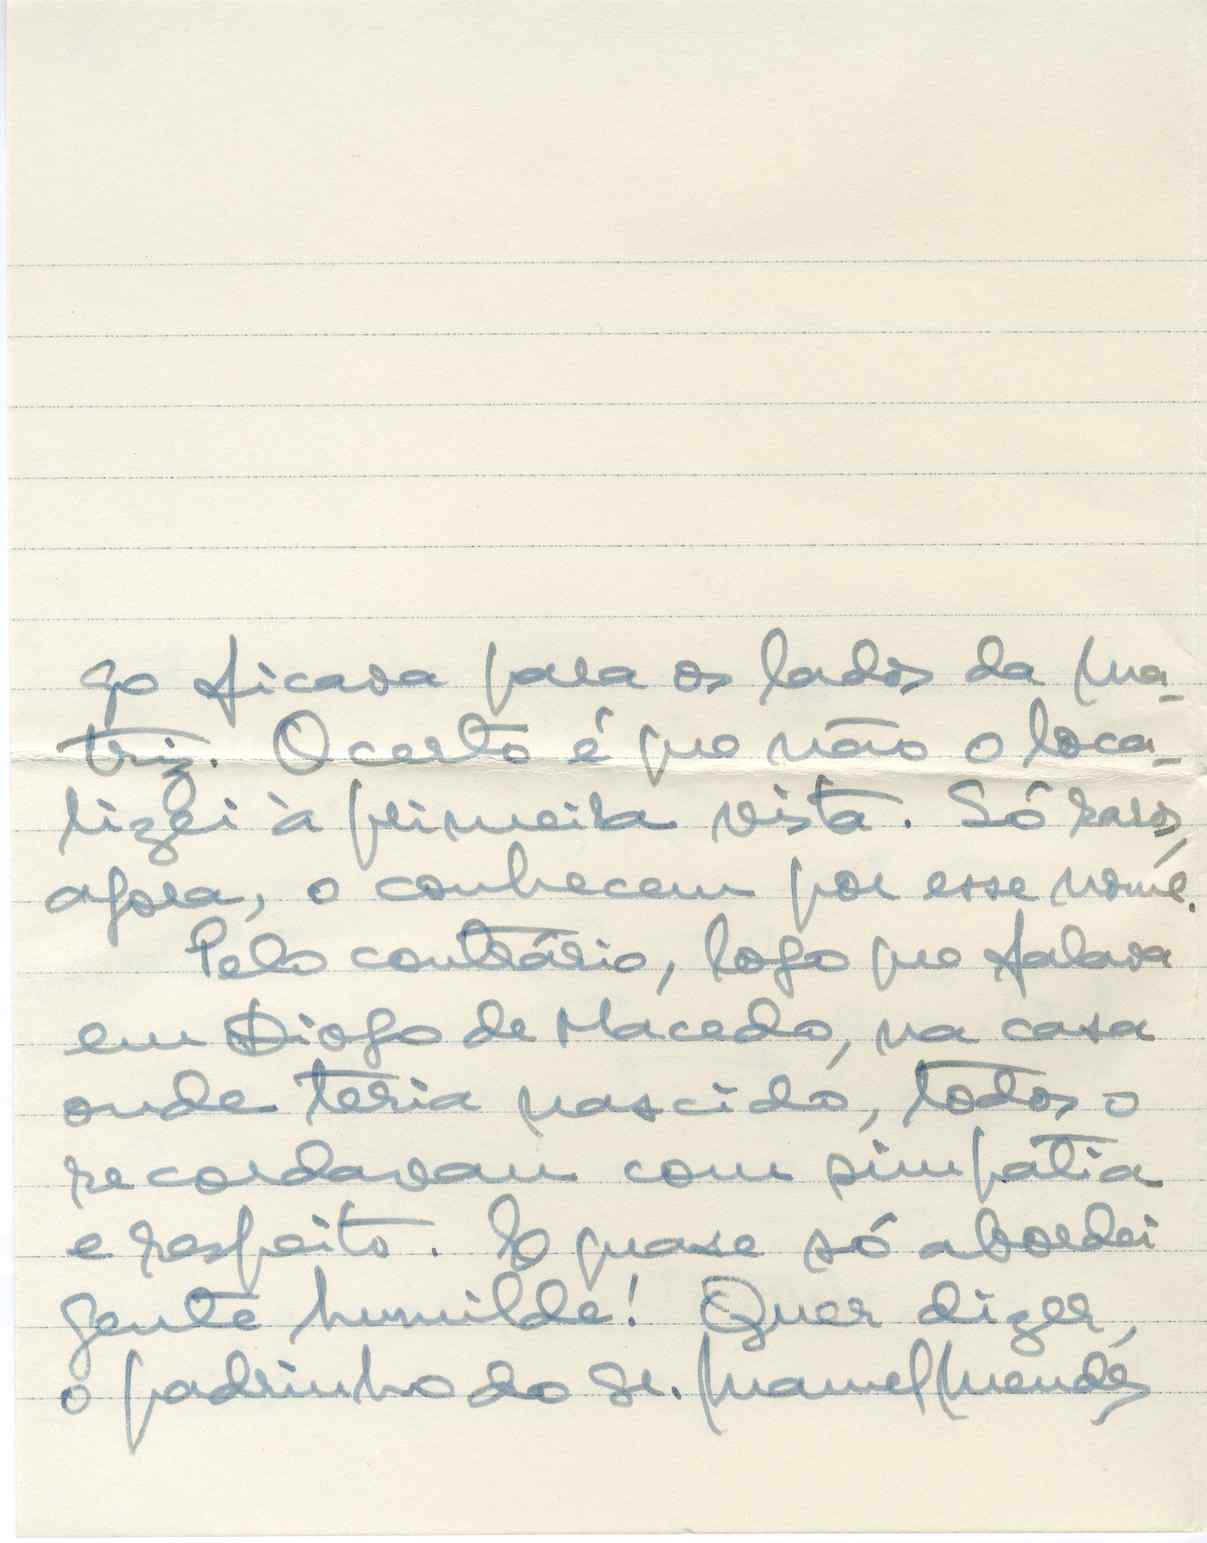 go ficava para os lados da ma-
triz. O certo é que não o loca-
lizei à primeira vista. Só raros,
agora, o conhecem por esse nome.
Pelo contrário, logo que falava
em Diogo de Macedo, na casa
onde teria nascido, todos o
recordavam com simpatia
e respeito. E quase só abordei
gente humilde! Quer dizer,
o padrinho do Sr. Manuel Mendes